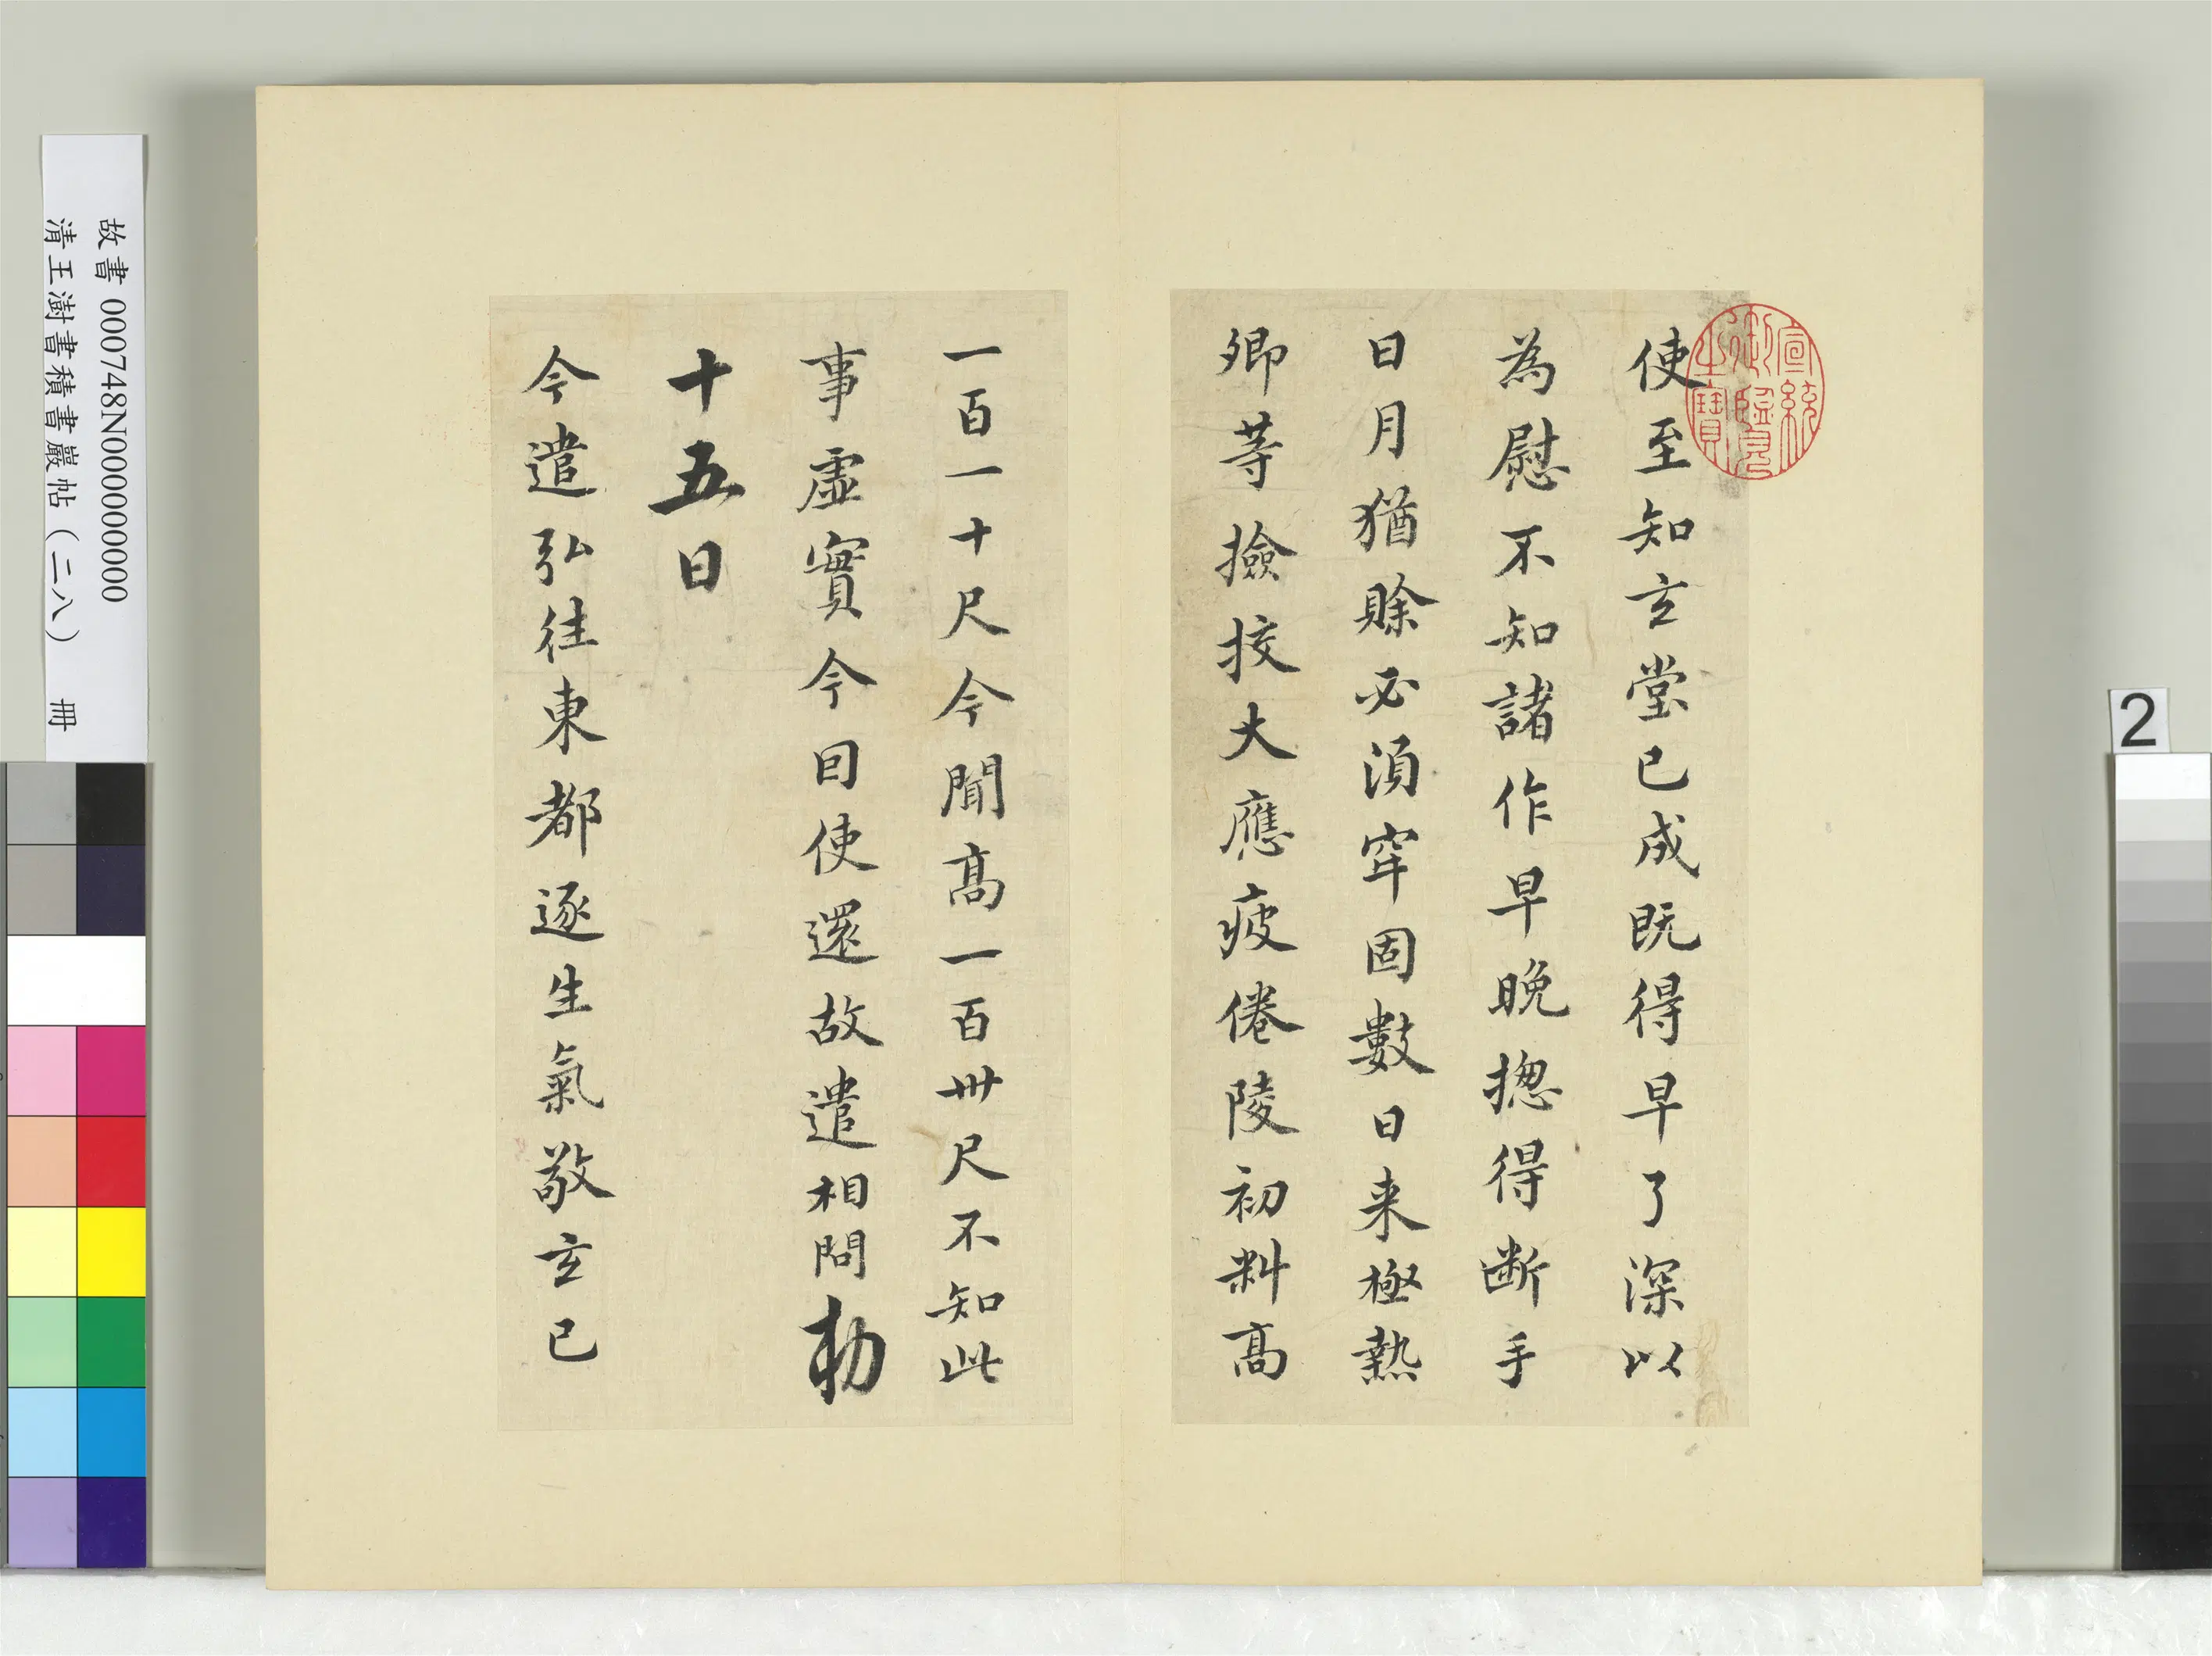 使至知玄堂已成既得早了深以
為慰不知諸作早晚揔得断手
日月猶賒必湏窂固數日来極熱
卿等撿挍大應疲倦陵初料高
一百一十尺今聞高一百卅尺不知此
事虛實今因使還故遣相問勑
十五日
今遣弘往東都逐生氣敬玄已
宣統御覽之寶
故書 000748N000000000
清王澍書積書巖帖(二八) 冊
2